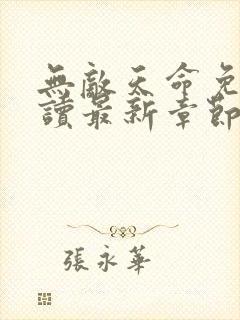 無敵天命免
讀最新章節
張永華